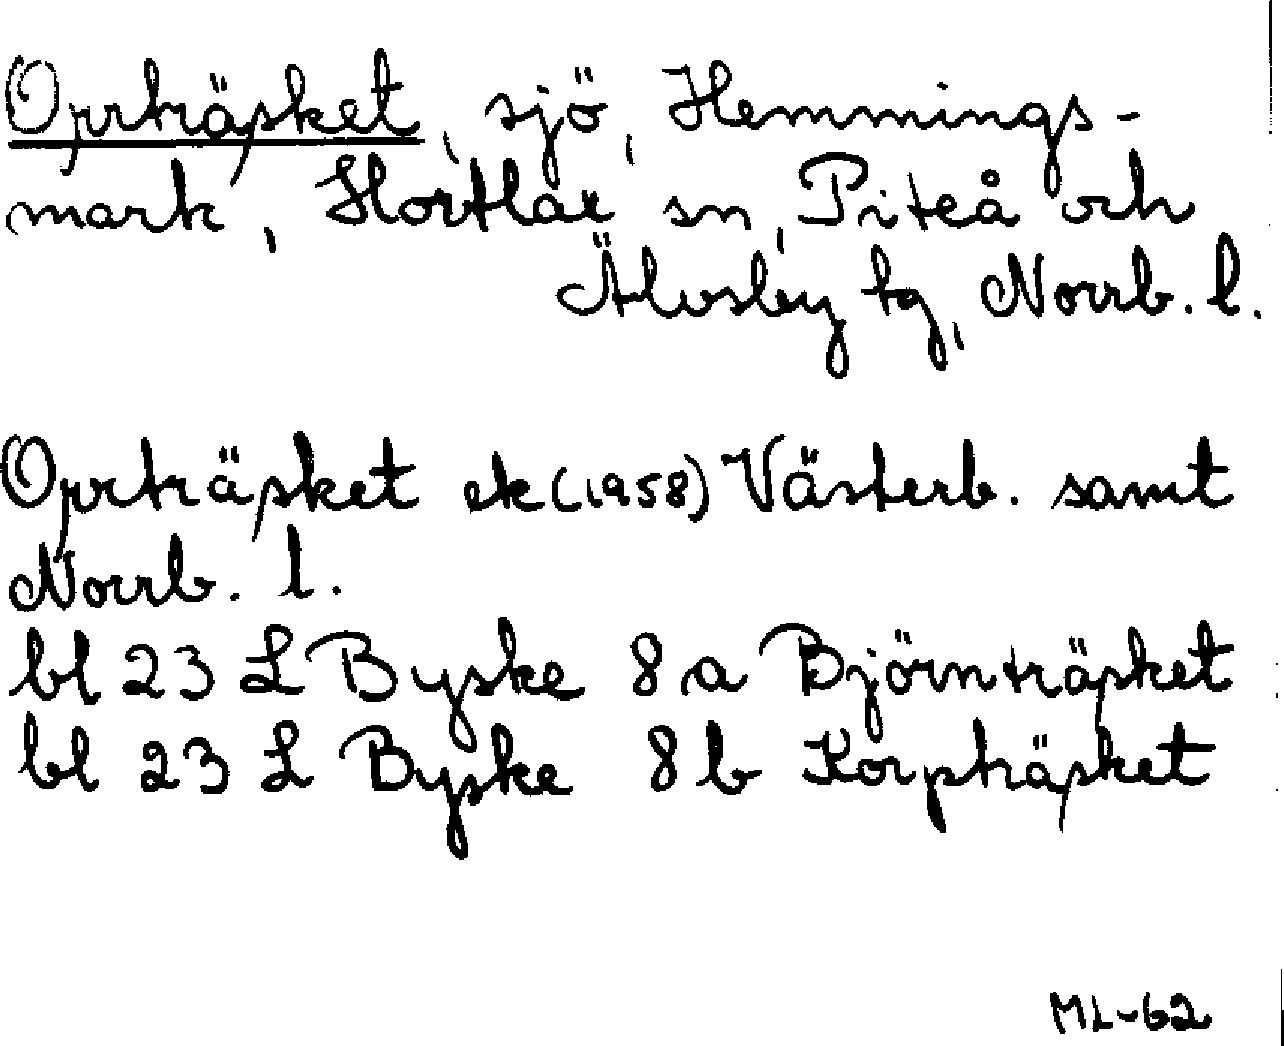 Orrträsket, sjö, Hemmings-
mark, Hortlax sn, Piteå och
Älvsby tg, Norrb. l.
Orrträsket ek (1958) Västerb. samt
Norrb. l.
bl 23 L Byske 8 a Björnträsket
bl 23 L Byske 8 b Korpträsket
ML-62